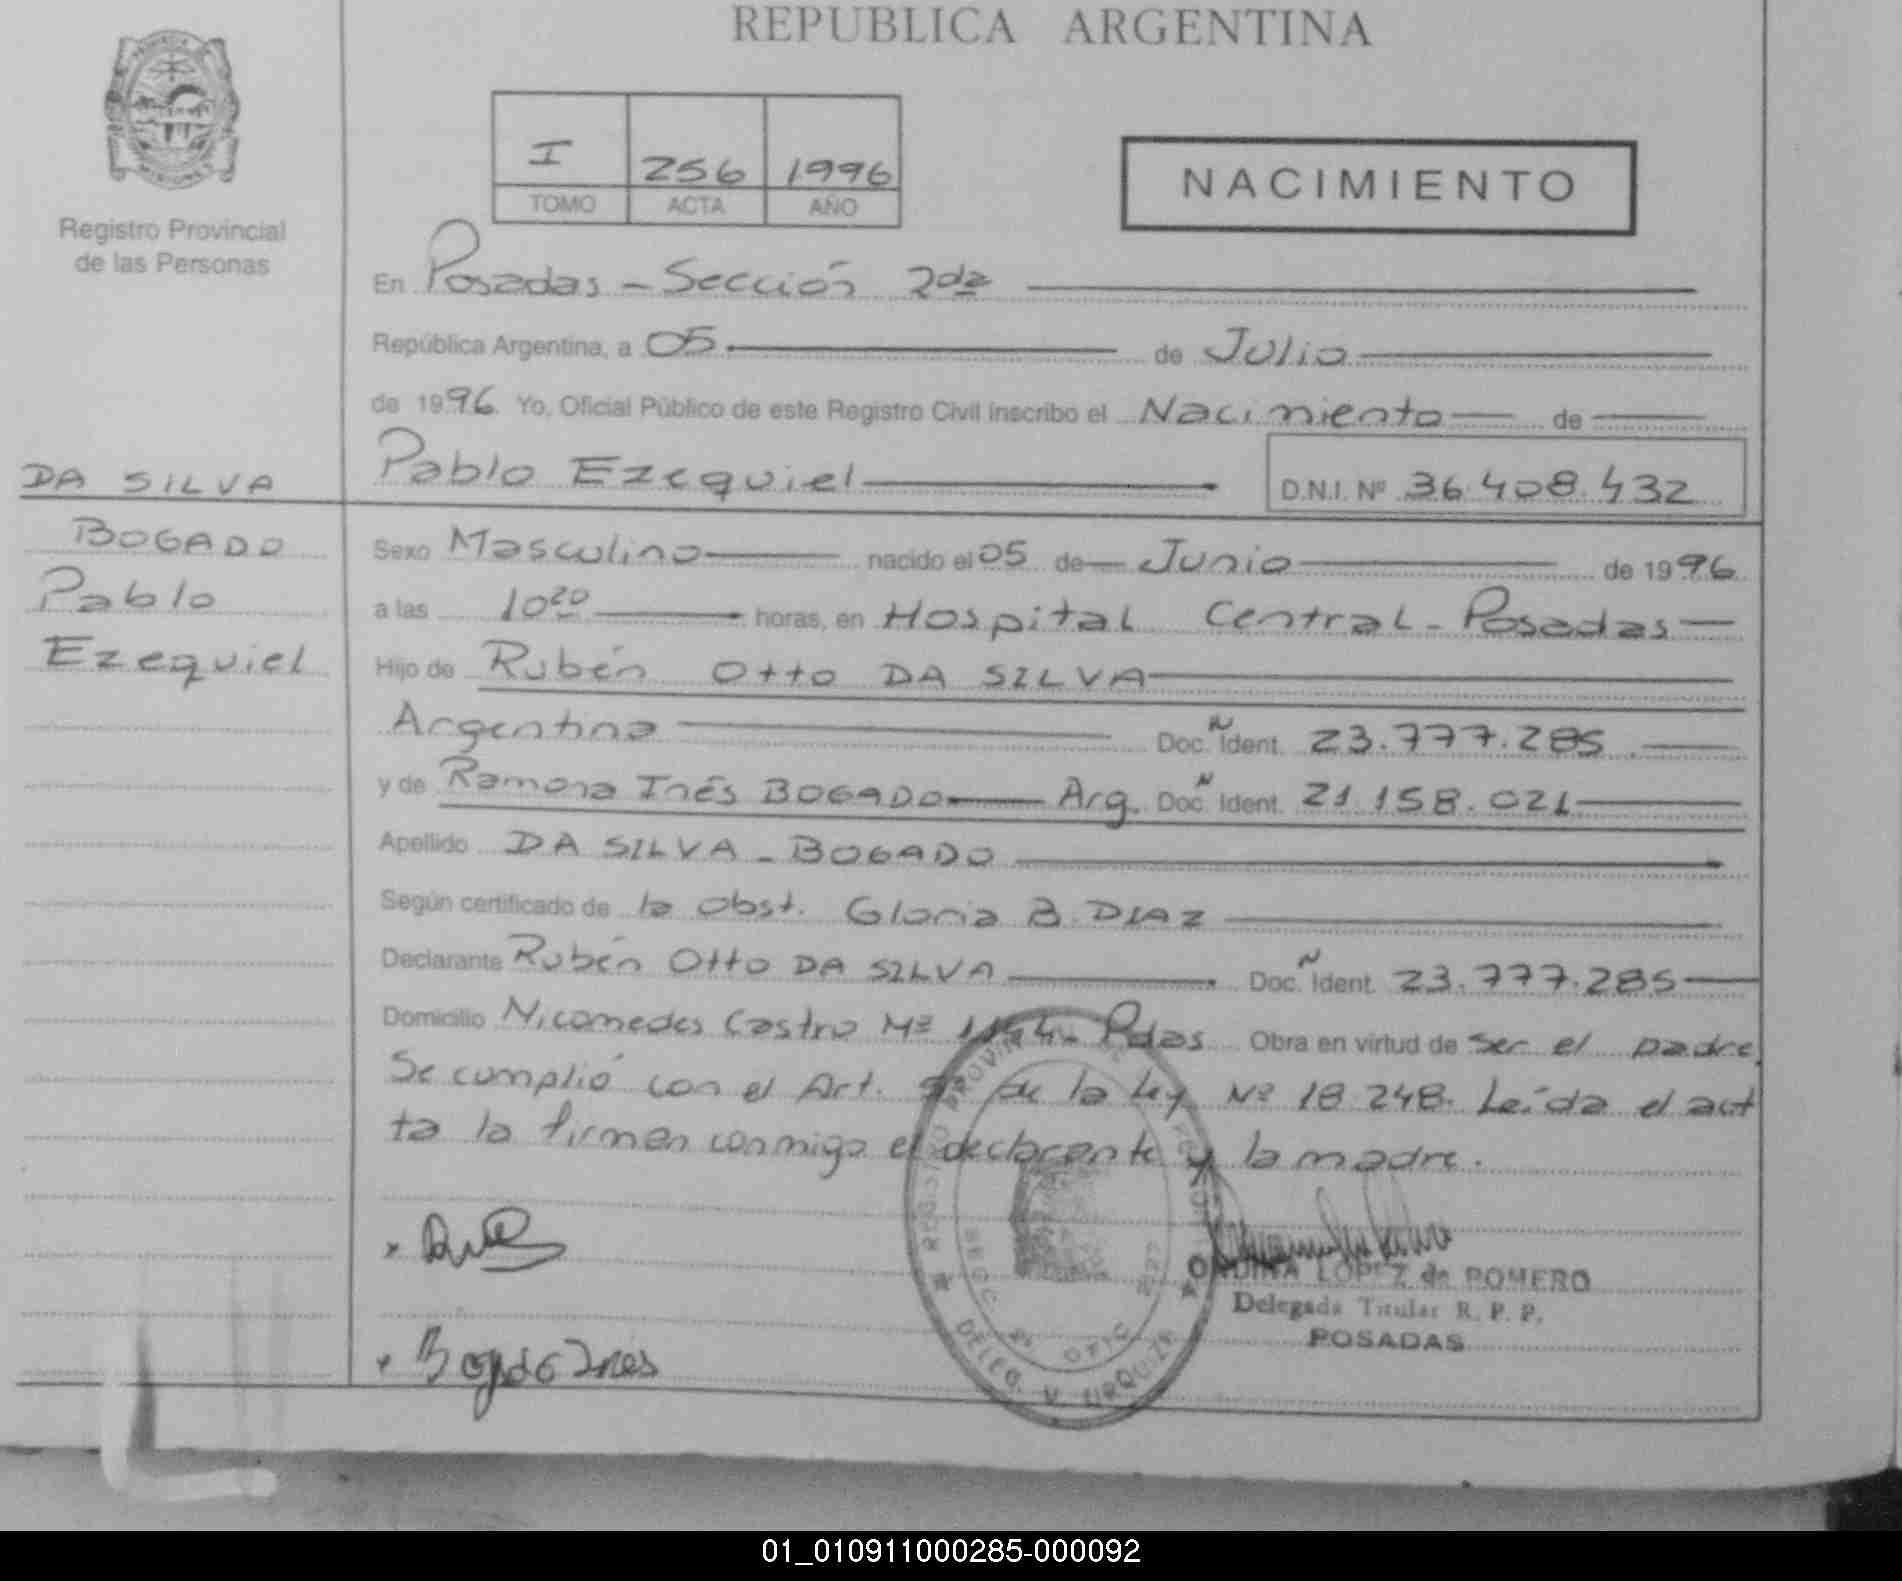 REPUBLICA ARGENTINA
PROVINCIA
MISIONES
Registro Provincial
de las Personas
I 256 1996
TOMO ACTA AÑO
NACIMIENTO
En Posadas - Sección 2da
República Argentina, a 05 de Julio
de 1996. Yo, Oficial Público de este Registro Civil inscribo el Nacimiento de
Pablo Ezequiel D.N.I. Nº 36.408.432
DA SILVA
BOGADO
Pablo
Ezequiel
Sexo Masculino nacido el 05 de Junio de 1996
a las 10 20 horas, en Hospital Central - Posadas
Hijo de Rubén Otto DA SILVA
Argentina Doc. N Ident. 23.777.285
y de Ramona Inés BOGADO Arg. Doc. N Ident. 21.158.021
Apellido DA SILVA - BOGADO
Según certificado de la Obst. Gloria B. DIAZ
Declarante Rubén Otto DA SILVA Doc. N Ident. 23.777.285
Domicilio Nicomedes Castro Nº Pdas Obra en virtud de Ser el padre.
Se cumplió con el Art. de la Ley Nº 18.248. Leída el act
ta la firman conmigo el declarante y la madre.
Bogado Ines
ONDINA LOPEZ de ROMERO
Delegada Titular R. P. P.
POSADAS
REGISTRO PROVINCIAL DE LAS PERSONAS
SECC. 2a OFIC.
DELEG. V. URQUIZA
01_010911000285-000092